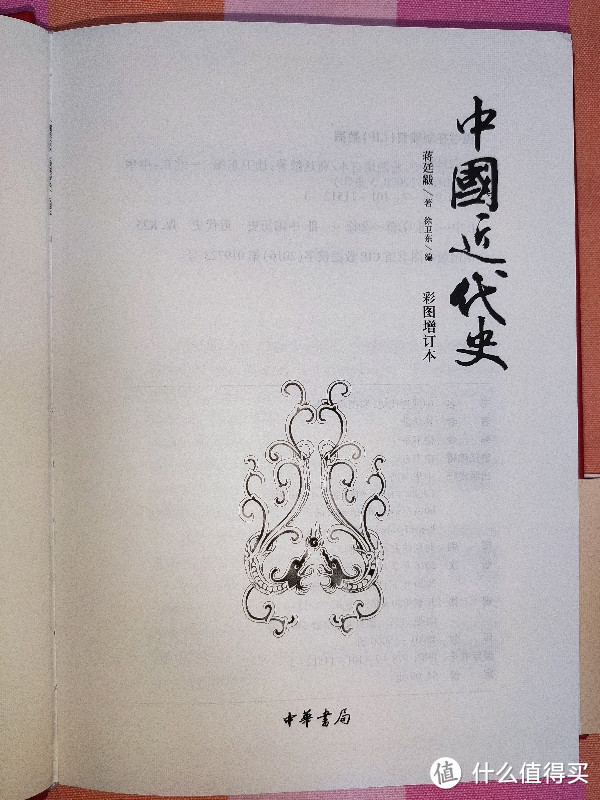 中國近代史
蒋廷黻 / 著 徐卫东 / 编
彩图增订本
中華書局
值 什么值得买